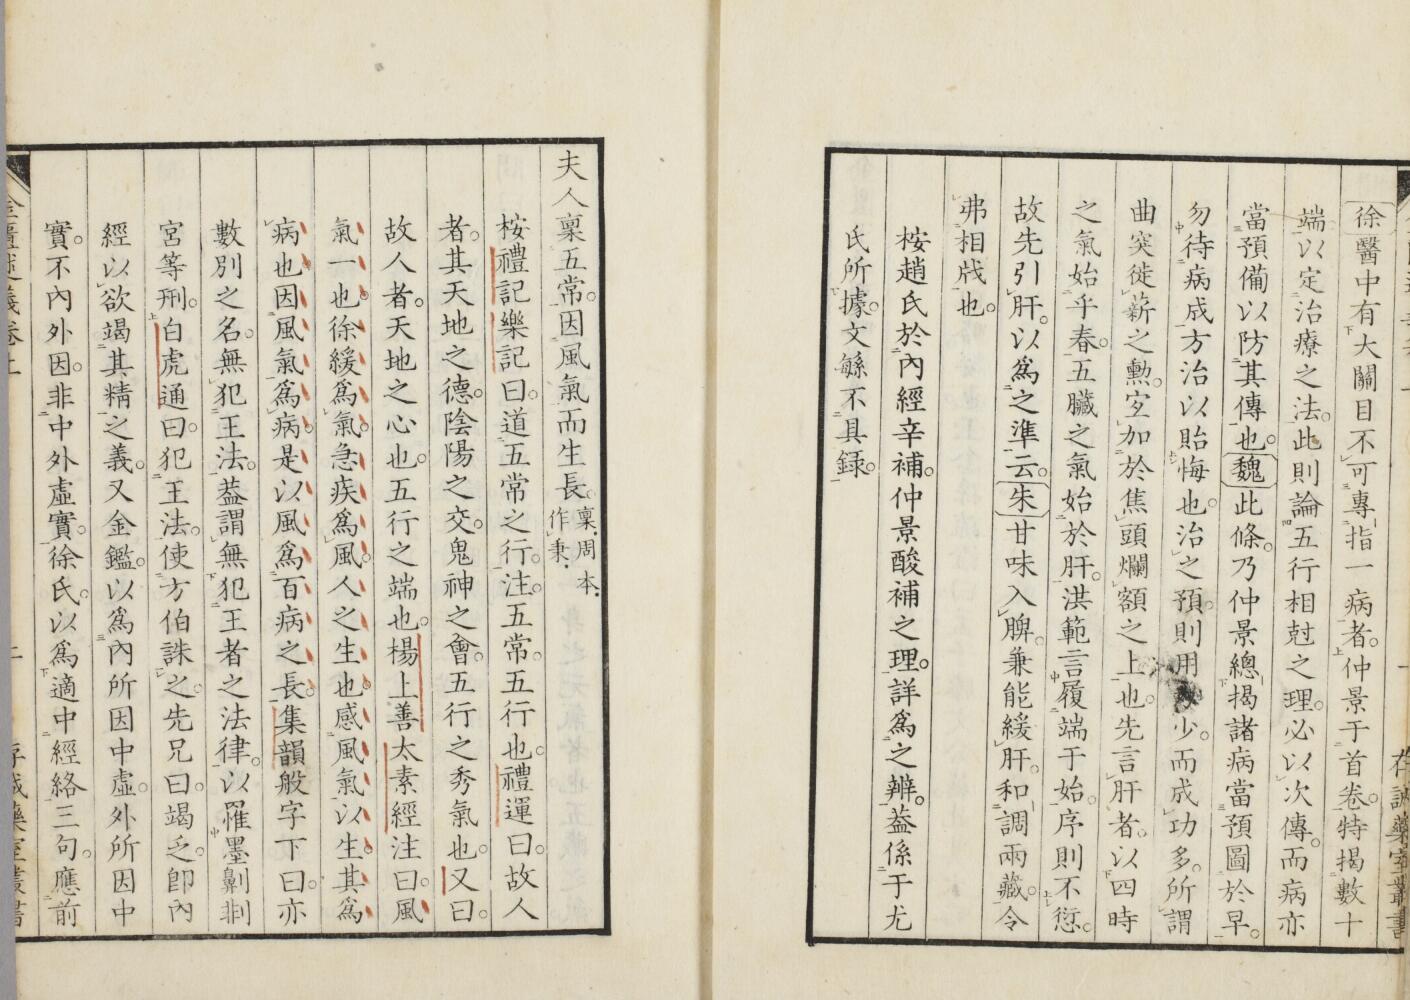 徐醫中有大關目不可專指一病者仲景于首卷特揭數十
端以定治療之法此則論五行相尅之理必以次傳而病亦
當預備以防其傳也魏此條乃仲景總揭諸病當預圖於早
勿待病成方治以貽悔也治之預則用少而成功多所謂
曲突徙薪之勲㝎加於焦頭爛額之上也先言肝者以四時
之氣始乎春五臟之氣始於肝洪範言履端于始序則不愆
故先引肝以爲之準云朱甘味入脾兼能緩肝和調兩藏令
弗相戕也
桉趙氏於內經辛補仲景酸補之理詳爲之辨葢係于尤
氏所據文緐不具録
夫人稟五常因風氣而生長稟周本作秉
桉禮記樂記曰道五常之行注五常五行也禮運曰故人
者其天地之德陰陽之交鬼神之會五行之秀氣也又曰
故人者天地之心也五行之端也楊上善太素經注曰風
氣一也徐緩爲氣急疾爲風人之生也感風氣以生其爲
病也因風氣爲病是以風爲百病之長集韻般字下曰亦
數別之名無犯王法葢謂無犯王者之法律以罹墨劓剕
宮等刑白虎通曰犯王法使方伯誅之先兄曰竭乏卽內
經以欲竭其精之義又金鑑以爲內所因中虛外所因中
實不內外因非中外虛實徐氏以爲適中經絡三句應前